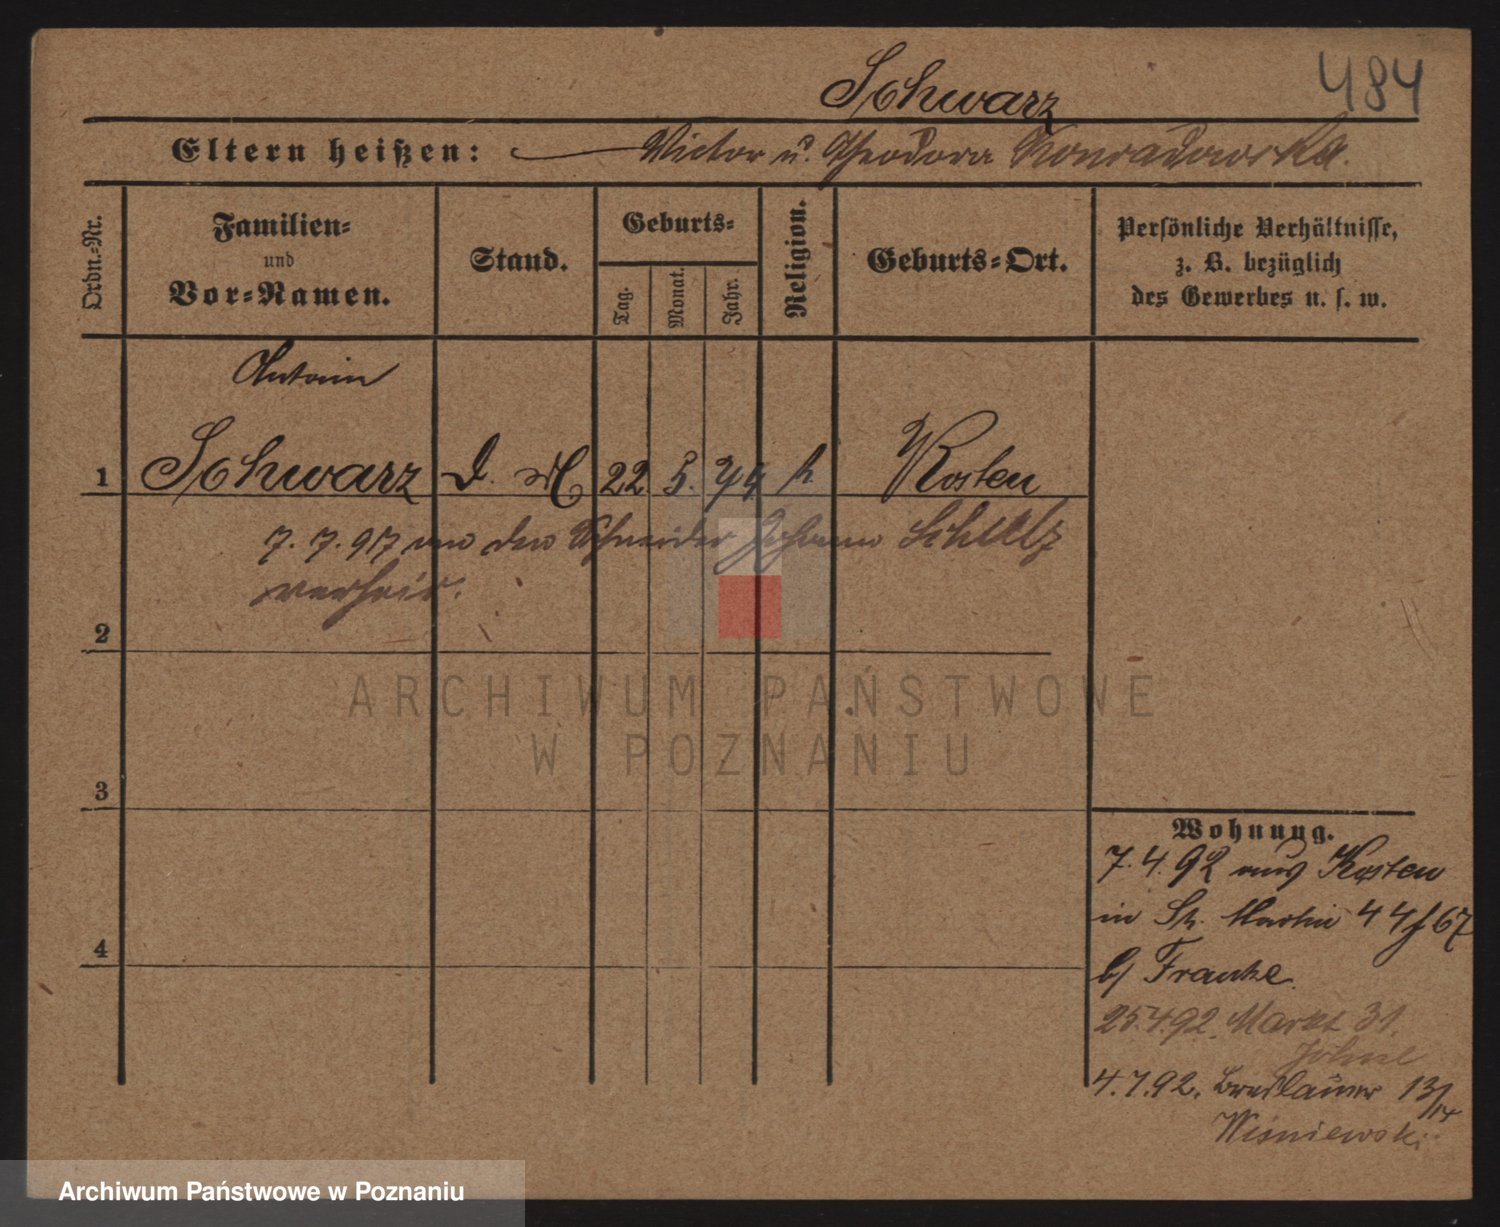 Schwarz
484
Eltern heißen: Victor u. Theodora Konradowska.
Ordn.-Nr.
Familien-
und
Vor-Namen.
Stand.
Geburts-
Tag.
Monat.
Jahr.
Religion.
Geburts-Ort.
Persönliche Verhältnisse,
z. B. bezüglich
des Gewerbes u. s. w.
1
Schwarz D. M 22. 5. k. Kosten
7. 7. 97 den Schneider Johann Schulz
verheir.
2
3
4
ARCHIWUM PAŃSTWOWE
W POZNANIU
Wohnung.
7. 4. 92 aus Kosten
in St. Martin 67
b/ Franke
25.4.92. Markt 31.
4.7.92. Breslauer 13/14
Wisniewski
Archiwum Państwowe w Poznaniu